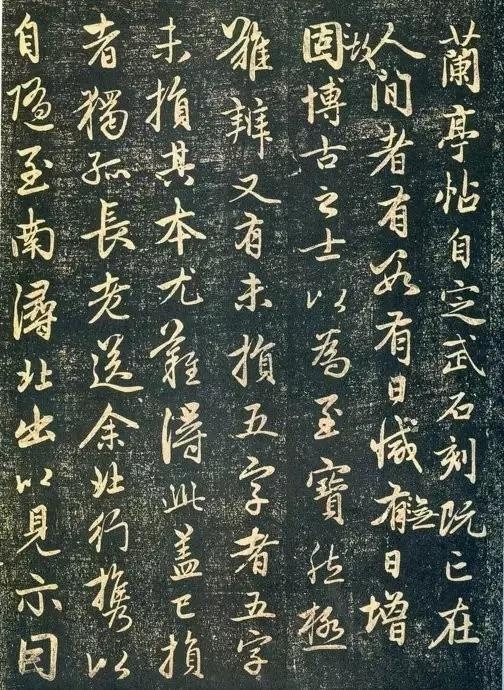 蘭亭帖自定武石刻既亡在
人間者有數有日減有無日增
固故博古之士以為至寶然極
難辨又有未損五字者五字
未損其本尤難得此蓋已損
者獨孤長老送余北行攜以
自隨至南潯北出以見示因